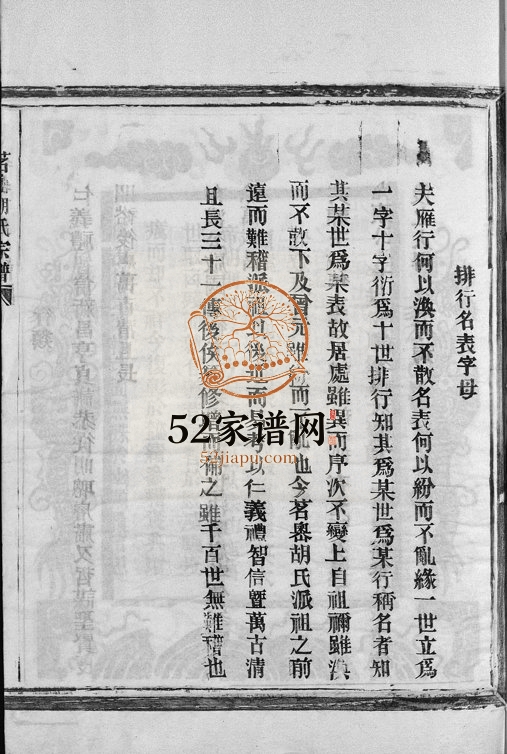 排行名表字母
夫雁行何以渙而不散名表何以紛而不亂緣一世立爲
一字十字衍爲十世排行知其爲某世爲某行稱名者知
其某世爲某表故居處雖異而序次不變上自祖禰雖渙
而不散下及曾元雖紛而不亂也今茗嶴胡氏派祖之前
遠而難稽派祖以後世而易考以仁義禮智信暨萬古清
且長三十一傳後俟續修增而補之雖千百世無難稽也
胡氏宗譜
52家谱网
52jiapu.com